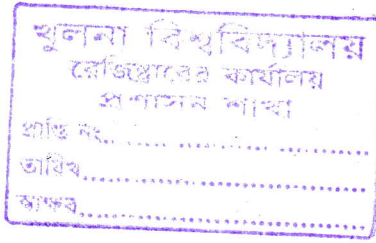 খুলনা বিশ্ববিদ্যালয়
রেজিস্ট্রারের কার্যালয়
প্রশাসন শাখা
প্রাপ্তি নং....................
তারিখ....................
স্বাক্ষর....................